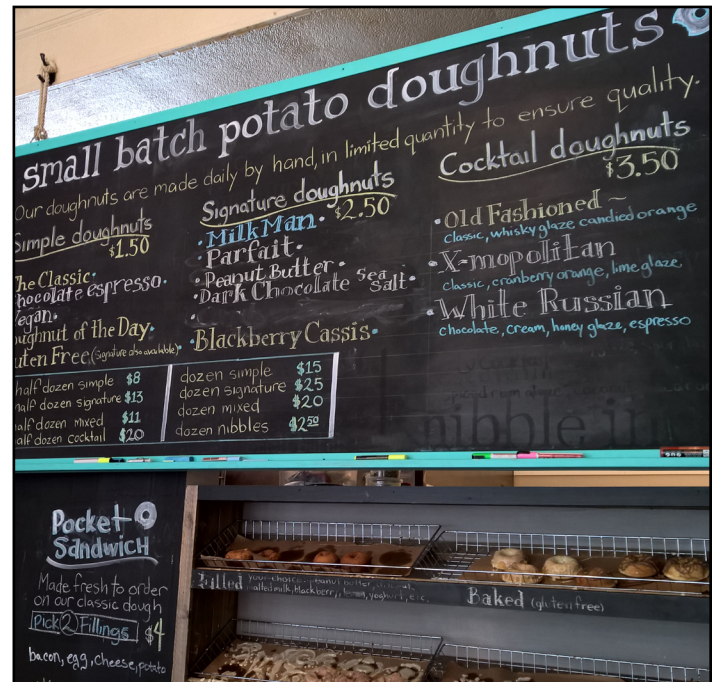 small batch potato doughnuts
Our doughnuts are made daily by hand, in limited quantity to ensure quality.
Simple doughnuts
$1.50
The Classic
hocolate espresso
egan
ughnut of the Day
uten Free (Signature also available)
Signature doughnuts
$2.50
Milk Man
Parfait
Peanut Butter
Dark Chocolate Sea Salt
Blackberry Cassis
Cocktail doughnuts
$3.50
Old Fashioned ~
classic, whisky glaze candied orange
X-mopolitan
classic, cranberry orange, lime glaze,
White Russian
chocolate, cream, honey glaze, espresso
half dozen simple $8
half dozen signature $13
half dozen mixed $11
alf dozen cocktail $20
dozen simple $15
dozen signature $25
dozen mixed $20
dozen nibbles $2.50
nibble
Pocket
Sandwich
Made fresh to order
on our classic dough
Pick 2 Fillings $4
bacon, egg, cheese, potato
your choice peanut butter,
malted milk, blackberry, yoghurt, etc.
Baked (gluten free)